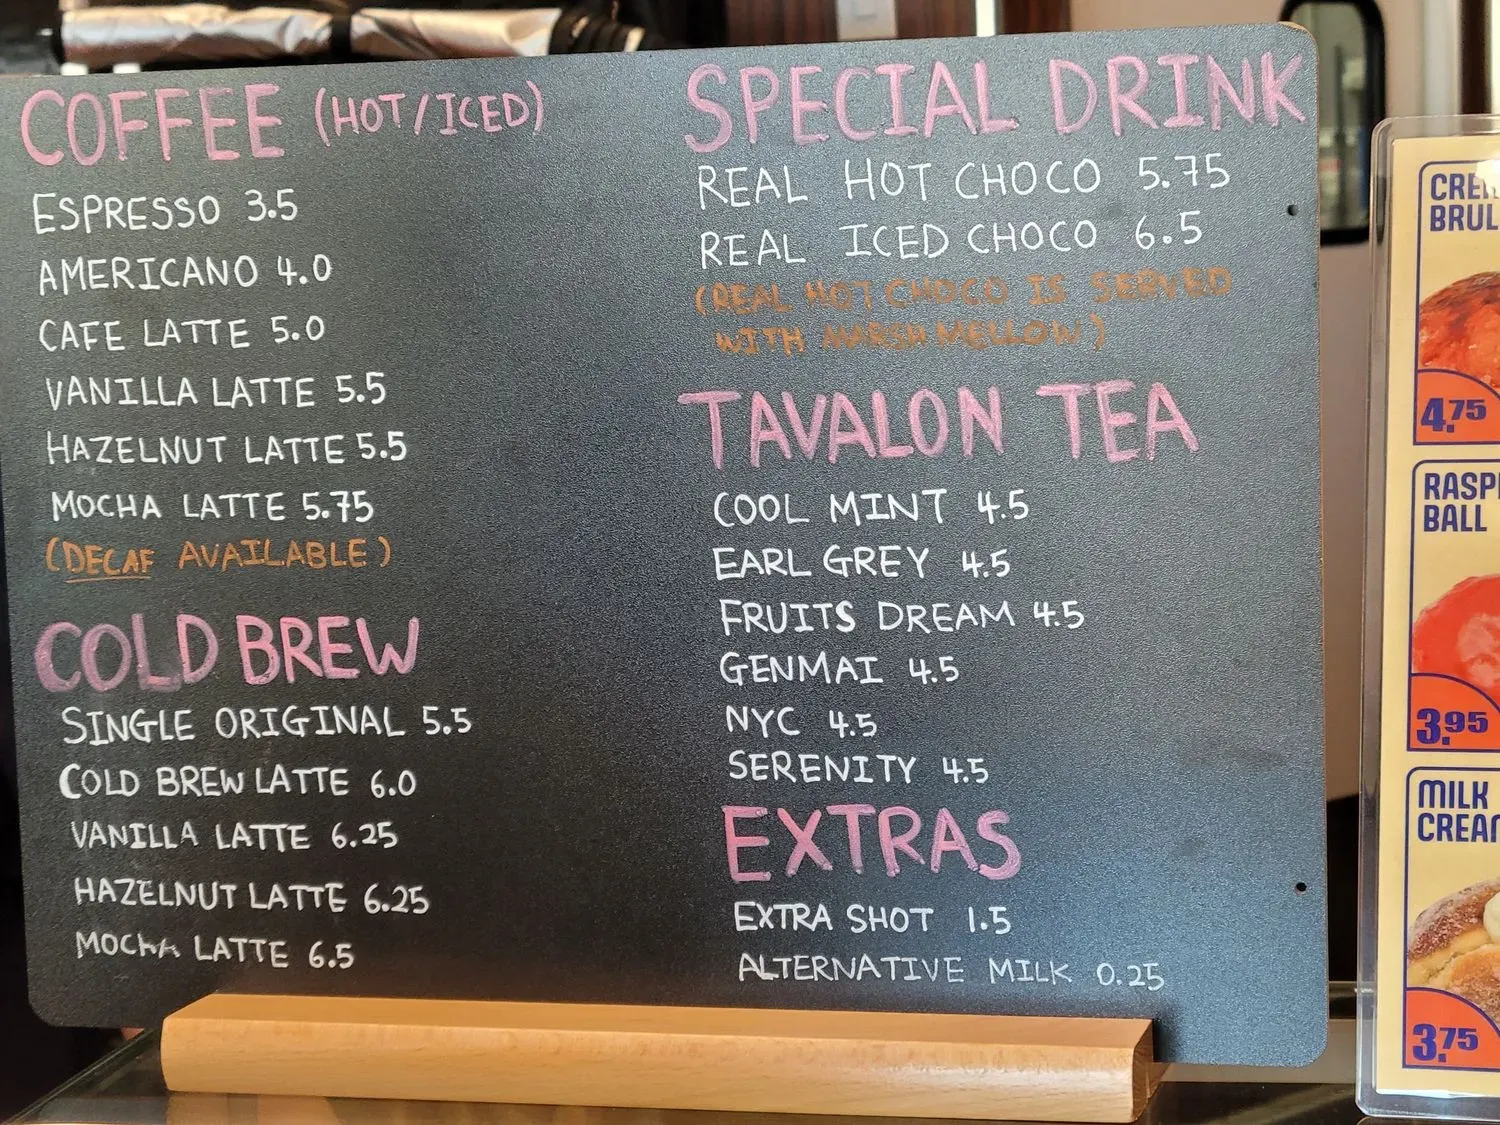 COFFEE (HOT/ICED)
ESPRESSO 3.5
AMERICANO 4.0
CAFE LATTE 5.0
VANILLA LATTE 5.5
HAZELNUT LATTE 5.5
MOCHA LATTE 5.75
(DECAF AVAILABLE)
COLD BREW
SINGLE ORIGINAL 5.5
COLD BREW LATTE 6.0
VANILLA LATTE 6.25
HAZELNUT LATTE 6.25
MOCHA LATTE 6.5
SPECIAL DRINK
REAL HOT CHOCO 5.75
REAL ICED CHOCO 6.5
(REAL HOT CHOCO IS SERVED
WITH MARSHMELLOW)
TAVALON TEA
COOL MINT 4.5
EARL GREY 4.5
FRUITS DREAM 4.5
GENMAI 4.5
NYC 4.5
SERENITY 4.5
EXTRAS
EXTRA SHOT 1.5
ALTERNATIVE MILK 0.25
4.75
BALL
3.95
MILK
3.75